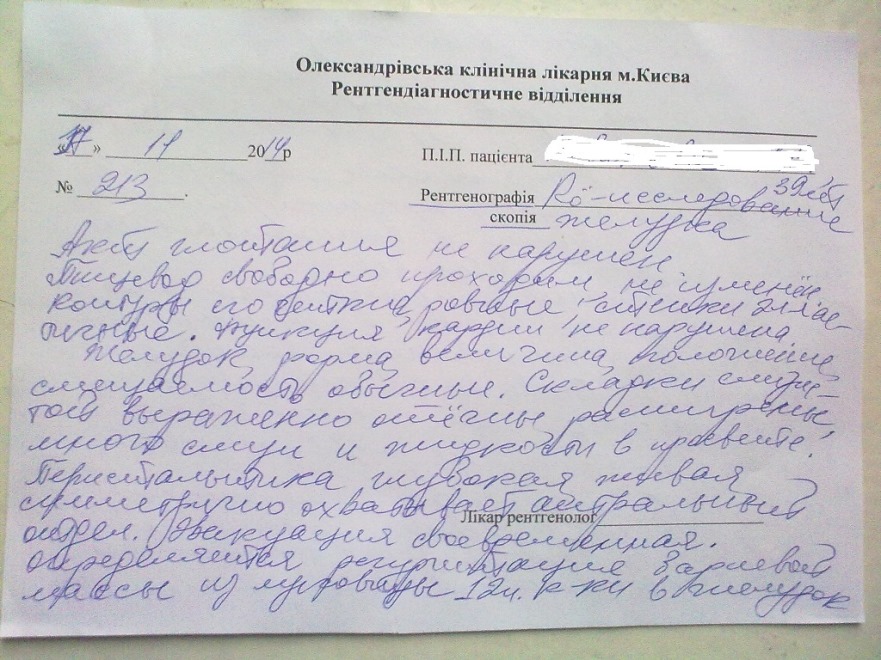 Олександрівська клінічна лікарня м.Києва
Рентгендіагностичне відділення
«17» 11 2014р П.І.П. пацієнта
№ 213. 39 лет
Рентгенографія Rö-исследование
скопія желудка
Акт глотания не нарушен
Пищевод свободно проходим, не изменён,
контуры его чёткие, ровные, стенки элас-
тичные. Функция кардии не нарушена
Желудок, форма, величина, положение,
смещаемость обычные. Складки слизис-
той выраженно отёчны, расширены,
много слизи и жидкости в просвете.
Перистальтика глубокая живая
симметрично охватывает антральный
Лікар рентгенолог
отдел. Эвакуация своевременная.
определяется регургитация бариевой
массы из луковицы 12п. к-ки в желудок